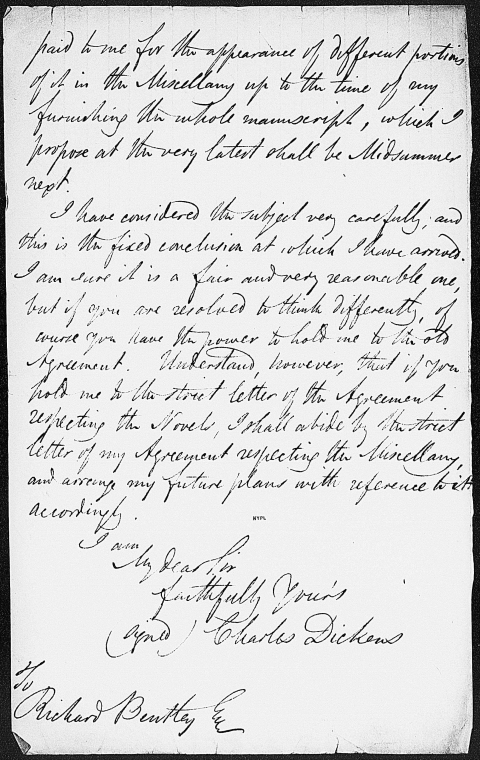 paid to me for the appearance of different portions
of it in the Miscellany up to the time of my
furnishing the whole manuscript, which I
propose at the very latest shall be Midsummer
next.
I have considered the subject very carefully; and
this is the fixed conclusion at which I have arrived.
I am sure it is a fair and very reasonable one,
but if you are resolved to think differently, of
course you have the power to hold me to the old
Agreement. Understand, however, that if you
hold me to the strict letter of the Agreement
respecting the Novels, I shall abide by the strict
letter of my Agreement respecting the Miscellany,
and arrange my future plans with reference to it
accordingly.
NYPL
I am
My dear Sir
faithfully Yours
(signed) Charles Dickens
To
Richard Bentley Esq